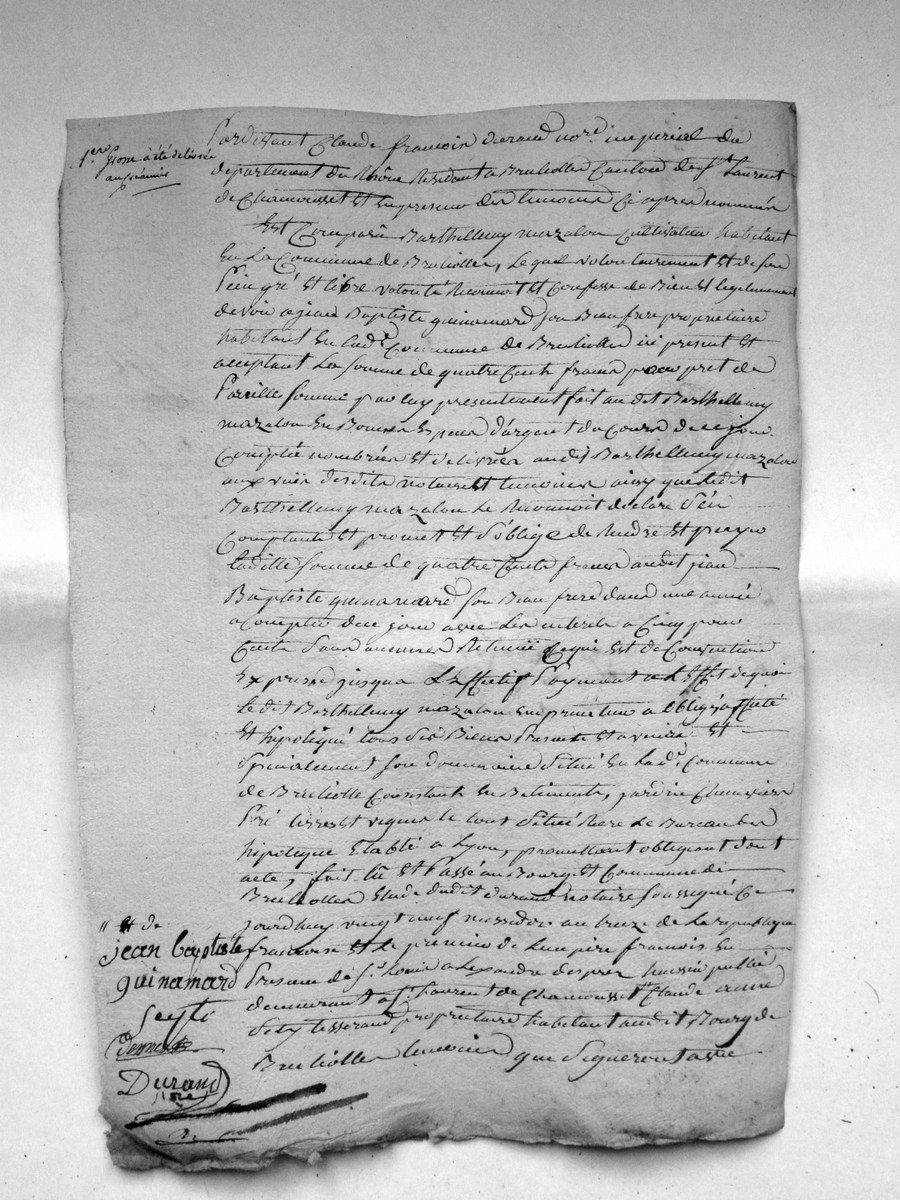 1ere
grosse a été delivrée
au créancier
Pardevant Claude françois durand nore. imperial du
departement du Rhône Résidant a Brulliolles Canton de St Laurent
de Chamousset Et En presence des temoins Ci apres nommés
Est Comparu Barthellemy mazalon Cultivateur habitant
En La Commune de Brulliolles, Lequel volontairement Et de son
plein gré Et libre volonté Reconnoit Et Confesse de Bien Et légitimement
devoir a jean Baptiste guinamard son Beau frere propriétaire
habitant En Lade. Commune de Brulliolles ici présent Et
acceptant La somme de quatre Cents francs pour pret de
Pareille somme par luy présentement fait au dit Barthellemy
mazalon En Bonnes Espèces d'argent du Cours de ce jour
Comptée nombrée Et delivrée au dit Barthellemy mazalon
aux vües desdits notaire Et temoins ainsy que Ledit
Barthellemy mazalon Le Reconnoit déclare s'en
Contante Et promet Et s'oblige de Rendre Et payer
laditte somme de quatre Cents francs audit jean
Baptiste guinamard son Beau frere dans une année
a Compter de ce jour avec Les interets a Cinq pour
Cents sans aucune Retenüe Ce qui Est de Convention
Expresse jusqua L'Effectif Payment a L'Effet de quoi
Le dit Barthellemy mazalon Emprunteur a obligé affecté
Et hipotéqué tous Ses Biens Présents Et avenir Et
Spécialement Son domaine Situé En Lade. Commune
de Brulliolle Consistant En Batiments, jardin Chenevier
Pré terres Et vignes le tout Situé Rière Le Bureau des
hipotéque Etabli a Lyon, promettant obligeant dont
acte, fait lü Et Passé au Bourg Et Commune de
Brulliolles Etude dudit durand notaire Soussigné Ce
jourdhuy vingt neuf messidor an treize de La republique
francoise Et Le premier de Lempire francois En
Presence de Sr. Louis alexandre desprez huissier public
demeurant a St. Laurent de Chamousset Claude anne
Sety tisserand propriétaire habitant audit Bourg de
Brulliolles temoins qui Signeront avec
// Et de
jean baptiste
guinamard
Seysti
Durand
nore